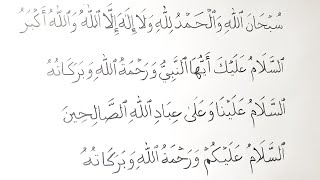 سُبْحَانَ اللّٰهِ وَالْحَمْدُ لِلّٰهِ وَلَا إِلٰهَ إِلَّا اللّٰهُ وَاللّٰهُ أَكْبَرُ
اَلسَّلَامُ عَلَيْكَ أَيُّهَا النَّبِيُّ وَرَحْمَةُ اللّٰهِ وَبَرَكَاتُهُ
اَلسَّلَامُ عَلَيْنَا وَعَلَىٰ عِبَادِ اللّٰهِ الصَّالِحِينَ
اَلسَّلَامُ عَلَيْكُمْ وَرَحْمَةُ اللّٰهِ وَبَرَكَاتُهُ